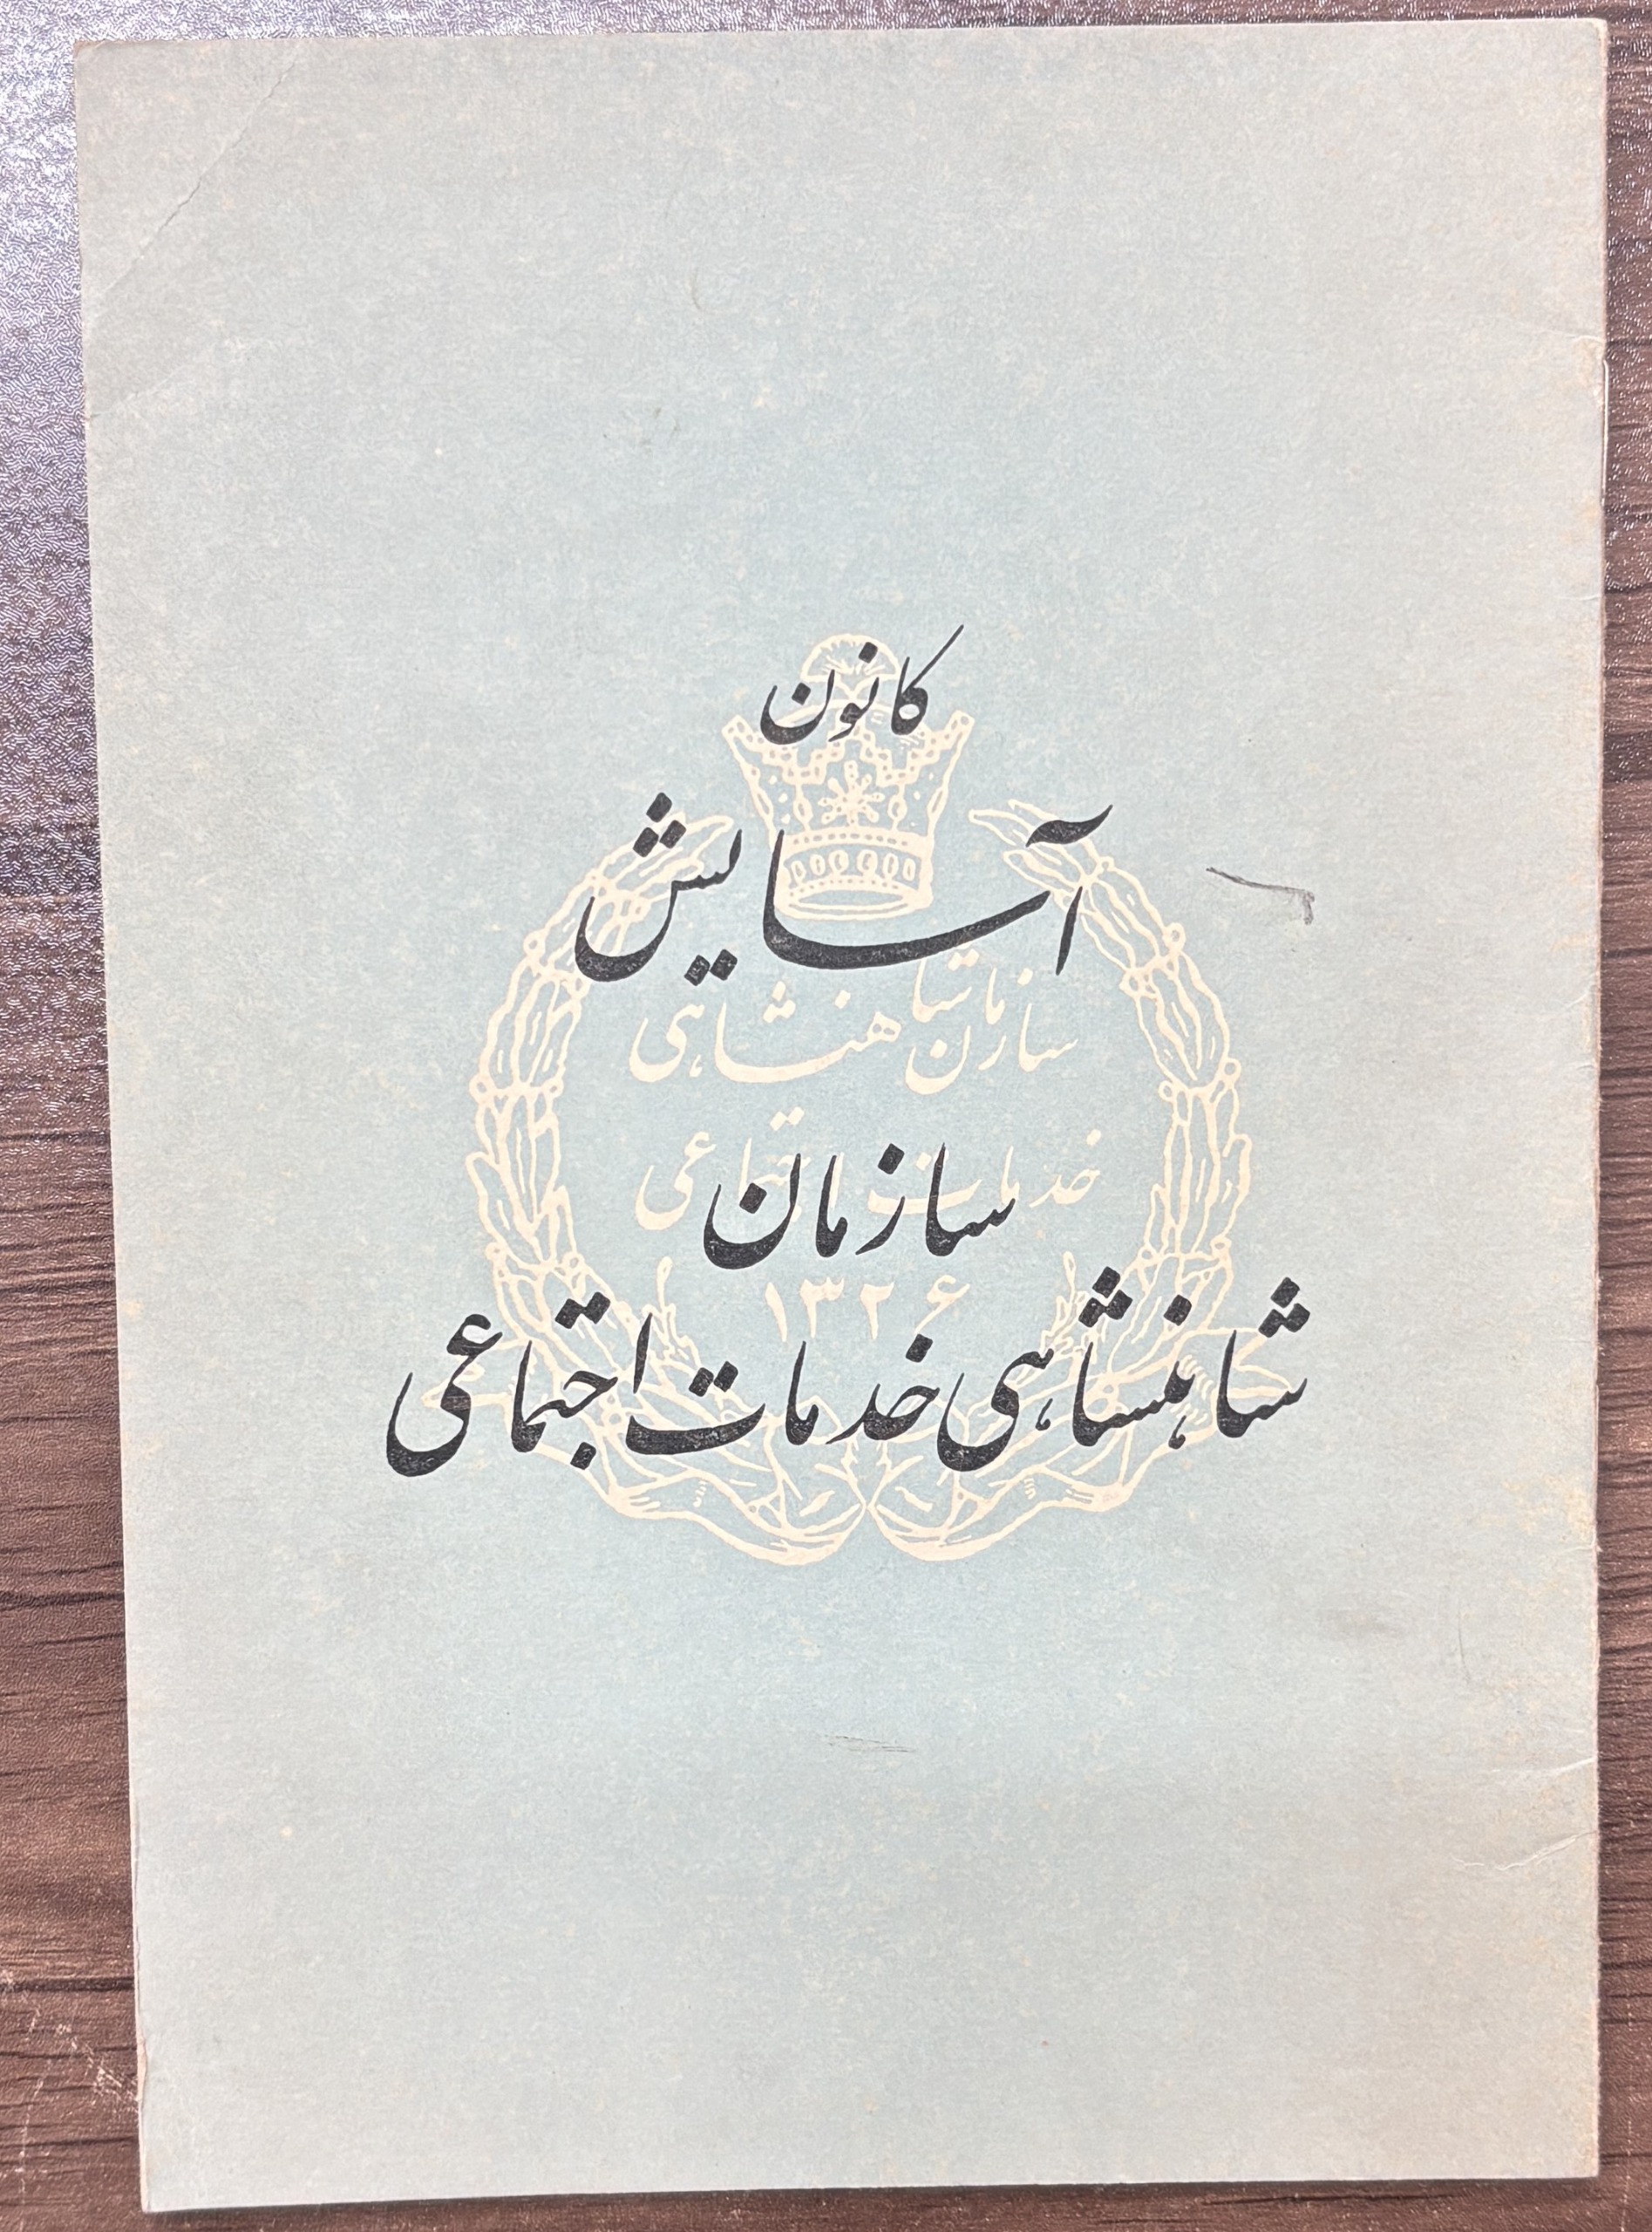 کانون
آسایش
سازمان شاهنشاهی
خدمات اجتماعی
سازمان
۱۳۲۶
شاهنشاهی خدمات اجتماعی